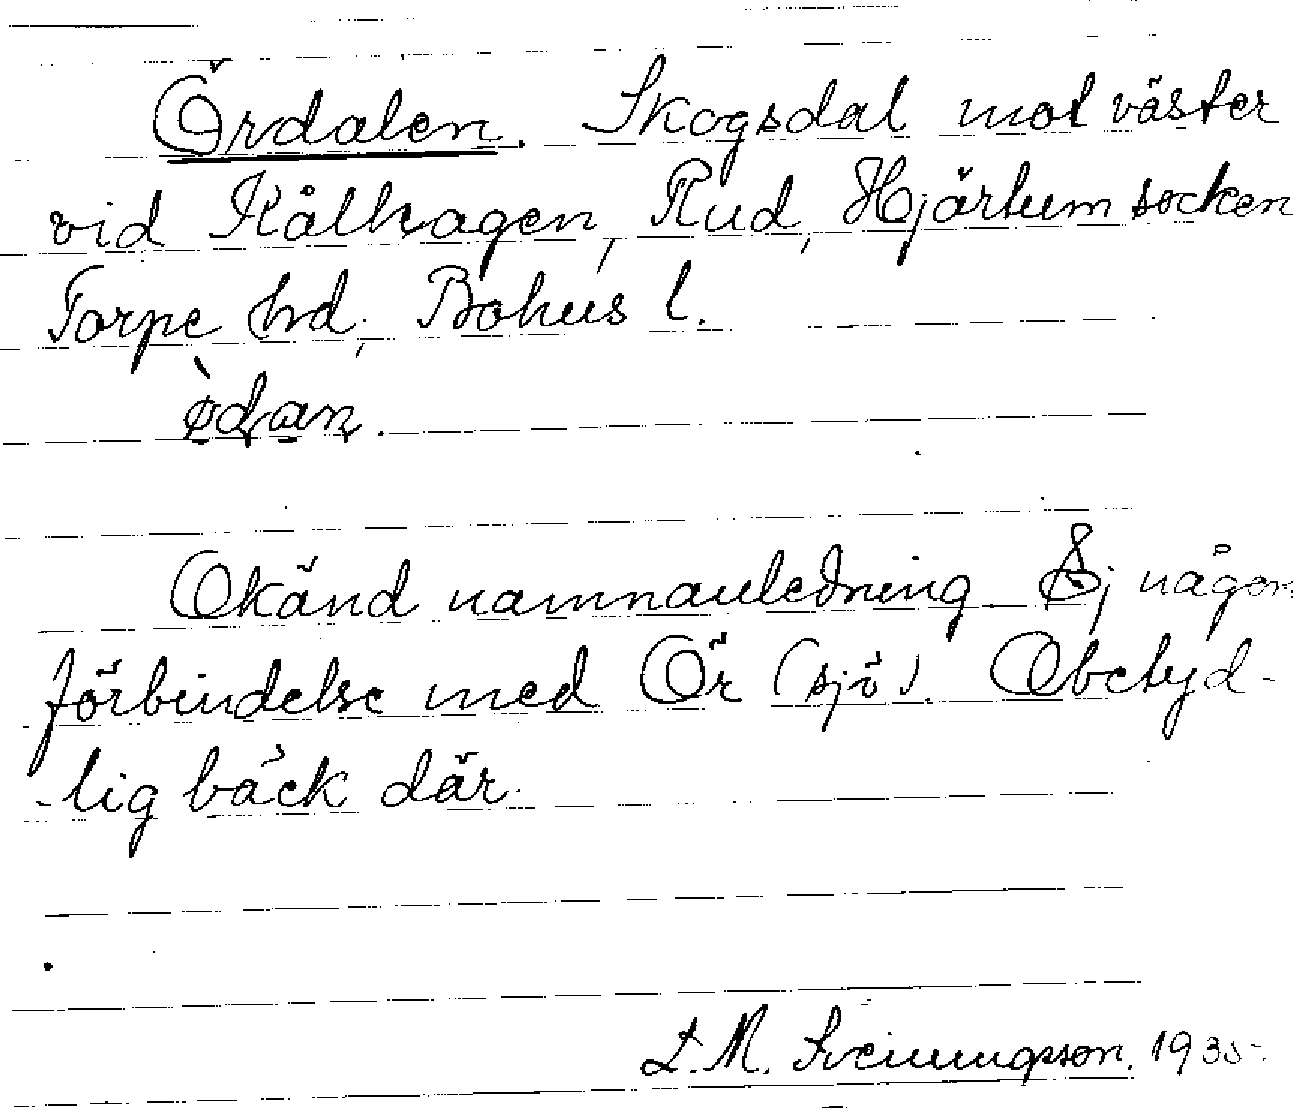 Ördalen. Skogsdal mot väster
vid Kålhagen, Rud, Hjärtum socken
Torpe hrd, Bohus l.
Okänd namnanledning. Ej någon
förbindelse med Ör (sjö). Obetyd-
-lig bäck där.
L. M. Sveinungsson. 1935.